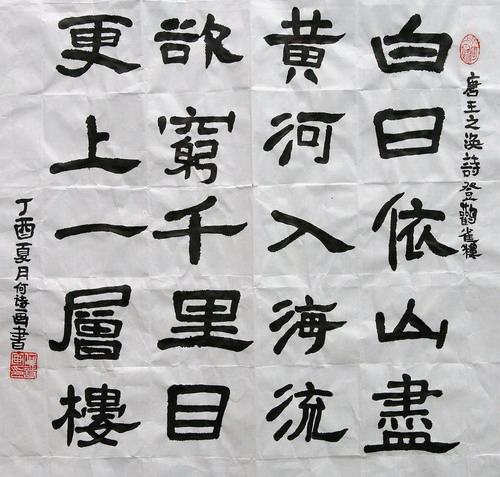 唐王之渙詩登鸛雀樓
白日依山盡
黃河入海流
欲窮千里目
更上一層樓
丁酉夏月何書